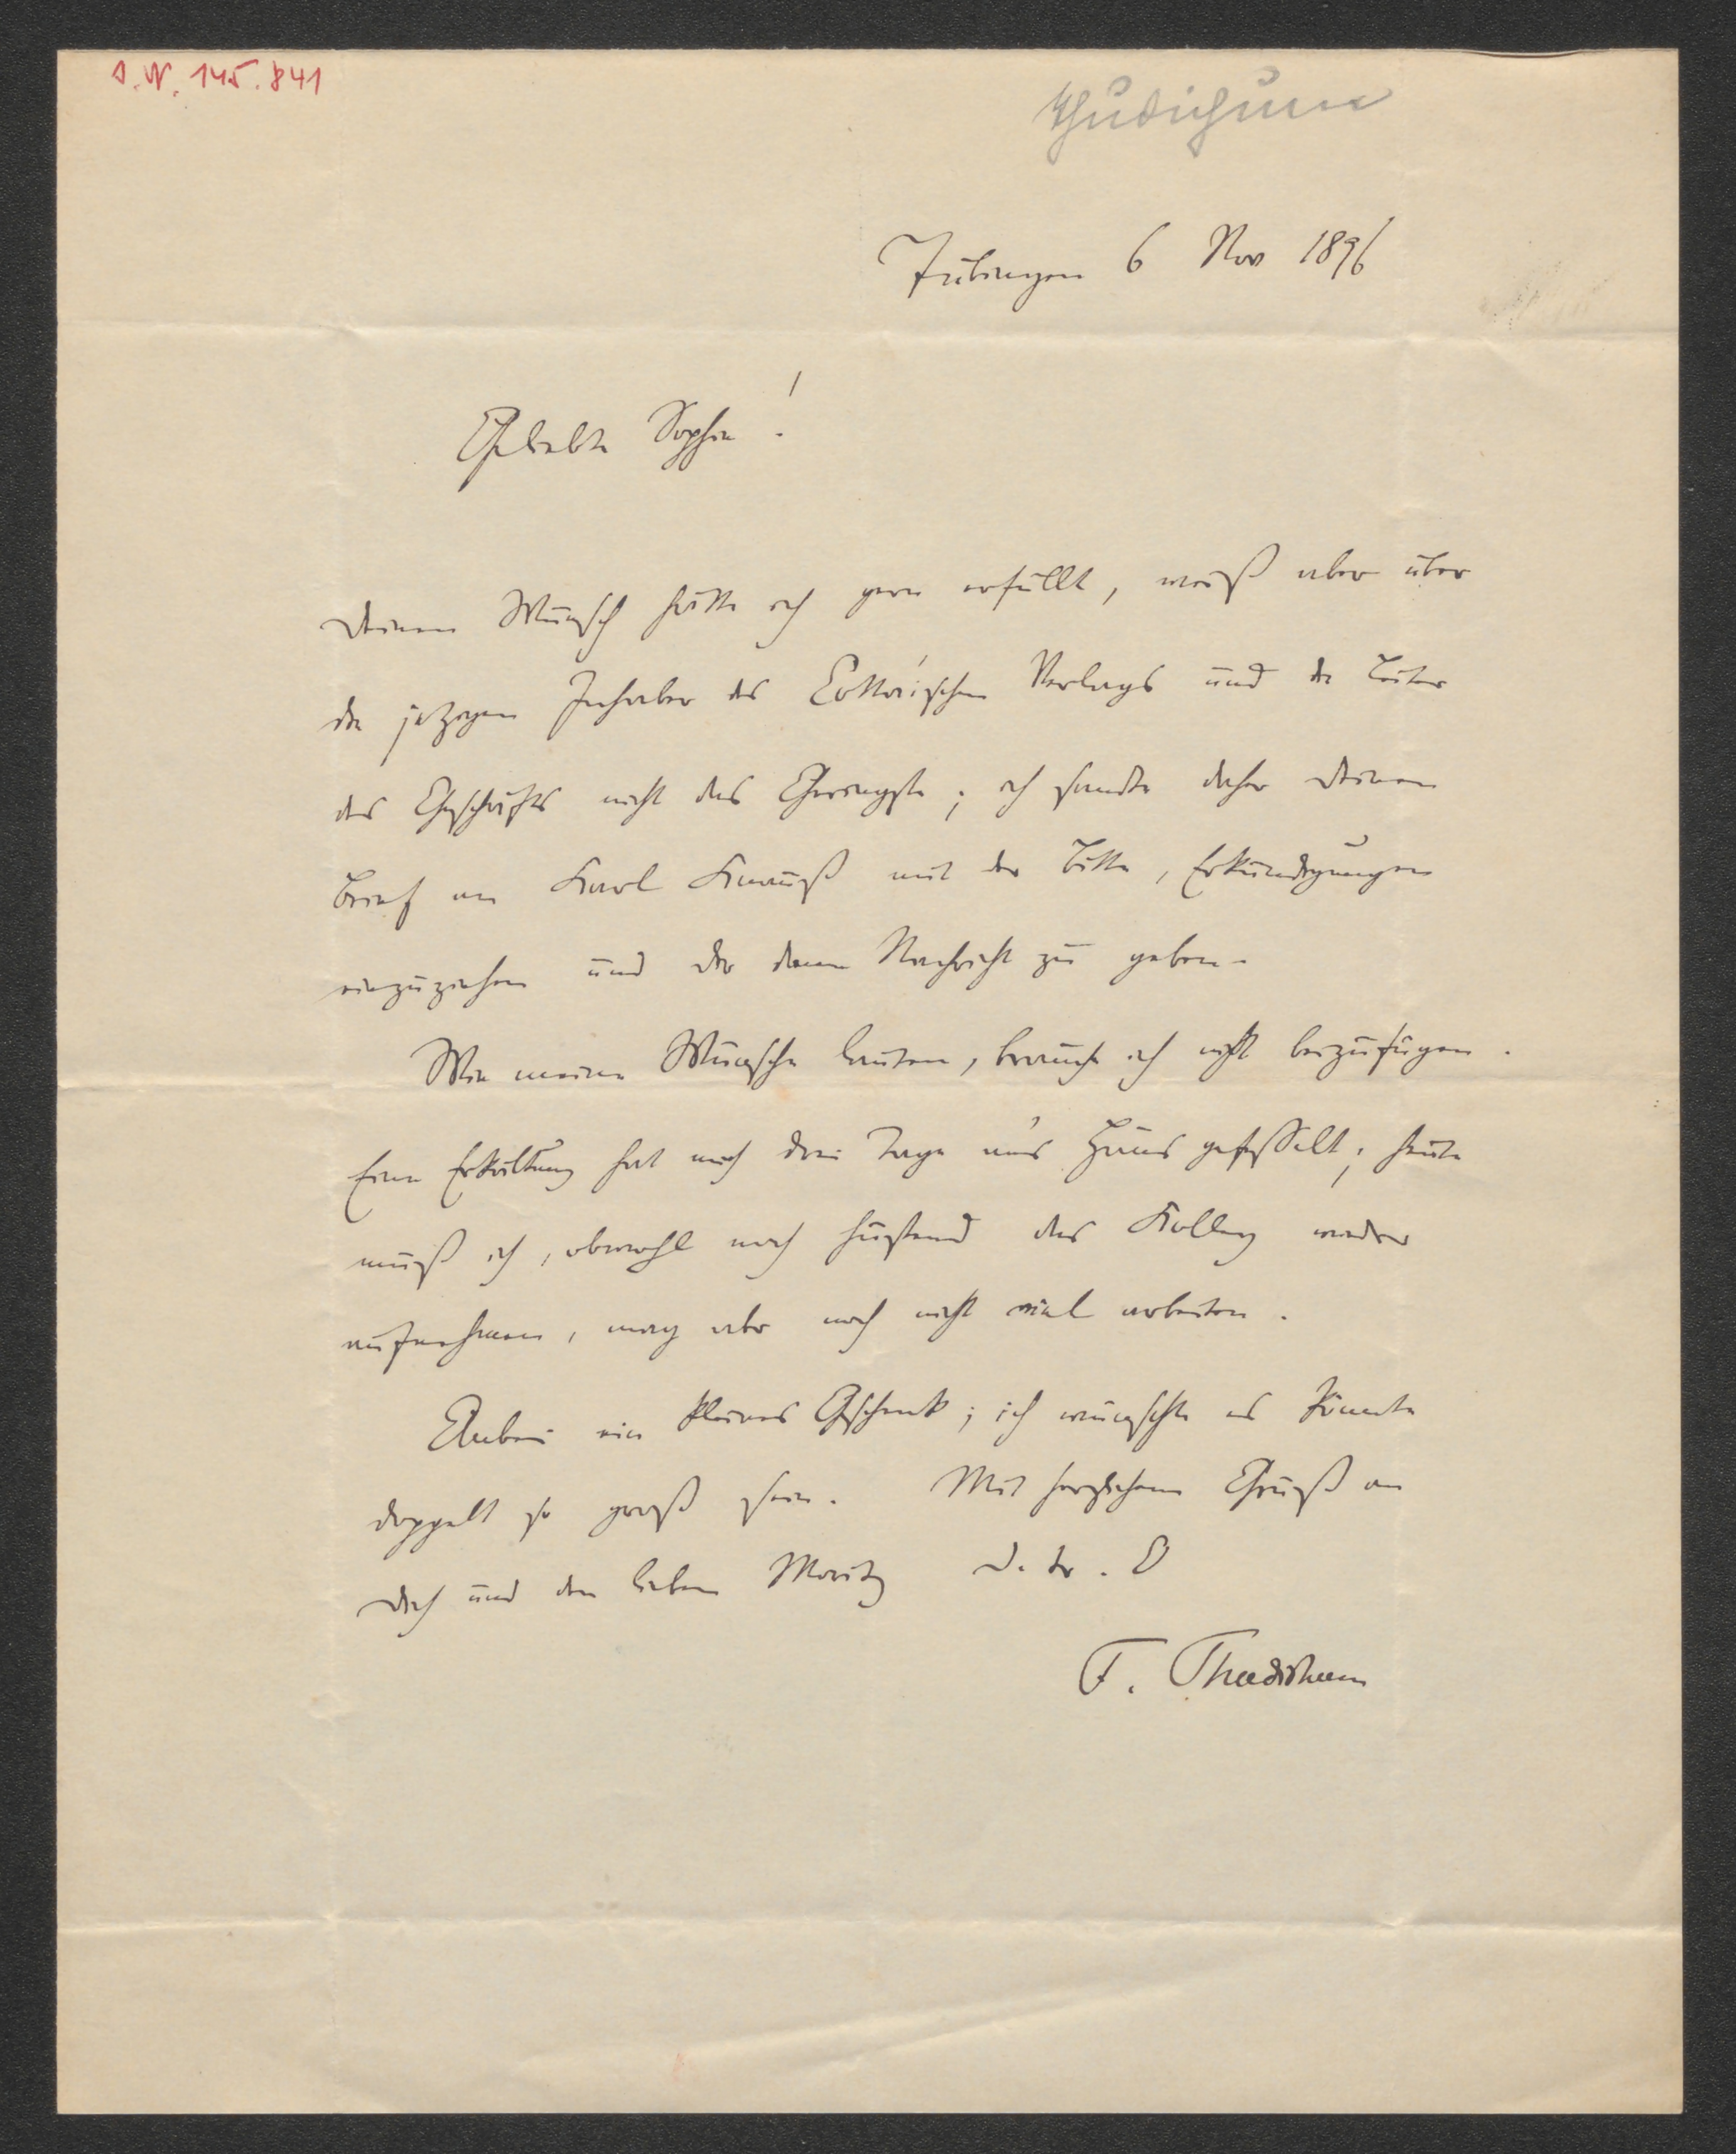 I.N. 145.841
Thudichum
Tübingen 6 Nov 1896
Geliebte Sophie!
Deinen Wunsch hätte ich gern erfüllt, weiß aber über
die jetzigen Inhaber des Cotta'ischen Verlags und die Leiter
des Geschäfts nicht das Geringste; ich sandte daher Deinen
Brief an Karl Knauß mit der Bitte, Erkundigungen
einzuziehen und Dir dann Nachricht zu geben.
Wie meine Wünsche lauten, brauche ich nicht beizufügen.
Eine Erkältung hat mich drei Tage an's Haus gefesselt; heute
muß ich, obwohl noch hustend das Kolleg wieder
aufnehmen, mag aber noch nicht viel arbeiten.
Anbei ein kleines Geschenk; ich wünschte es könnte
doppelt so groß sein. Mit herzlichem Gruß an
Dich und den lieben Moritz D. tr. O
F. Thudichum